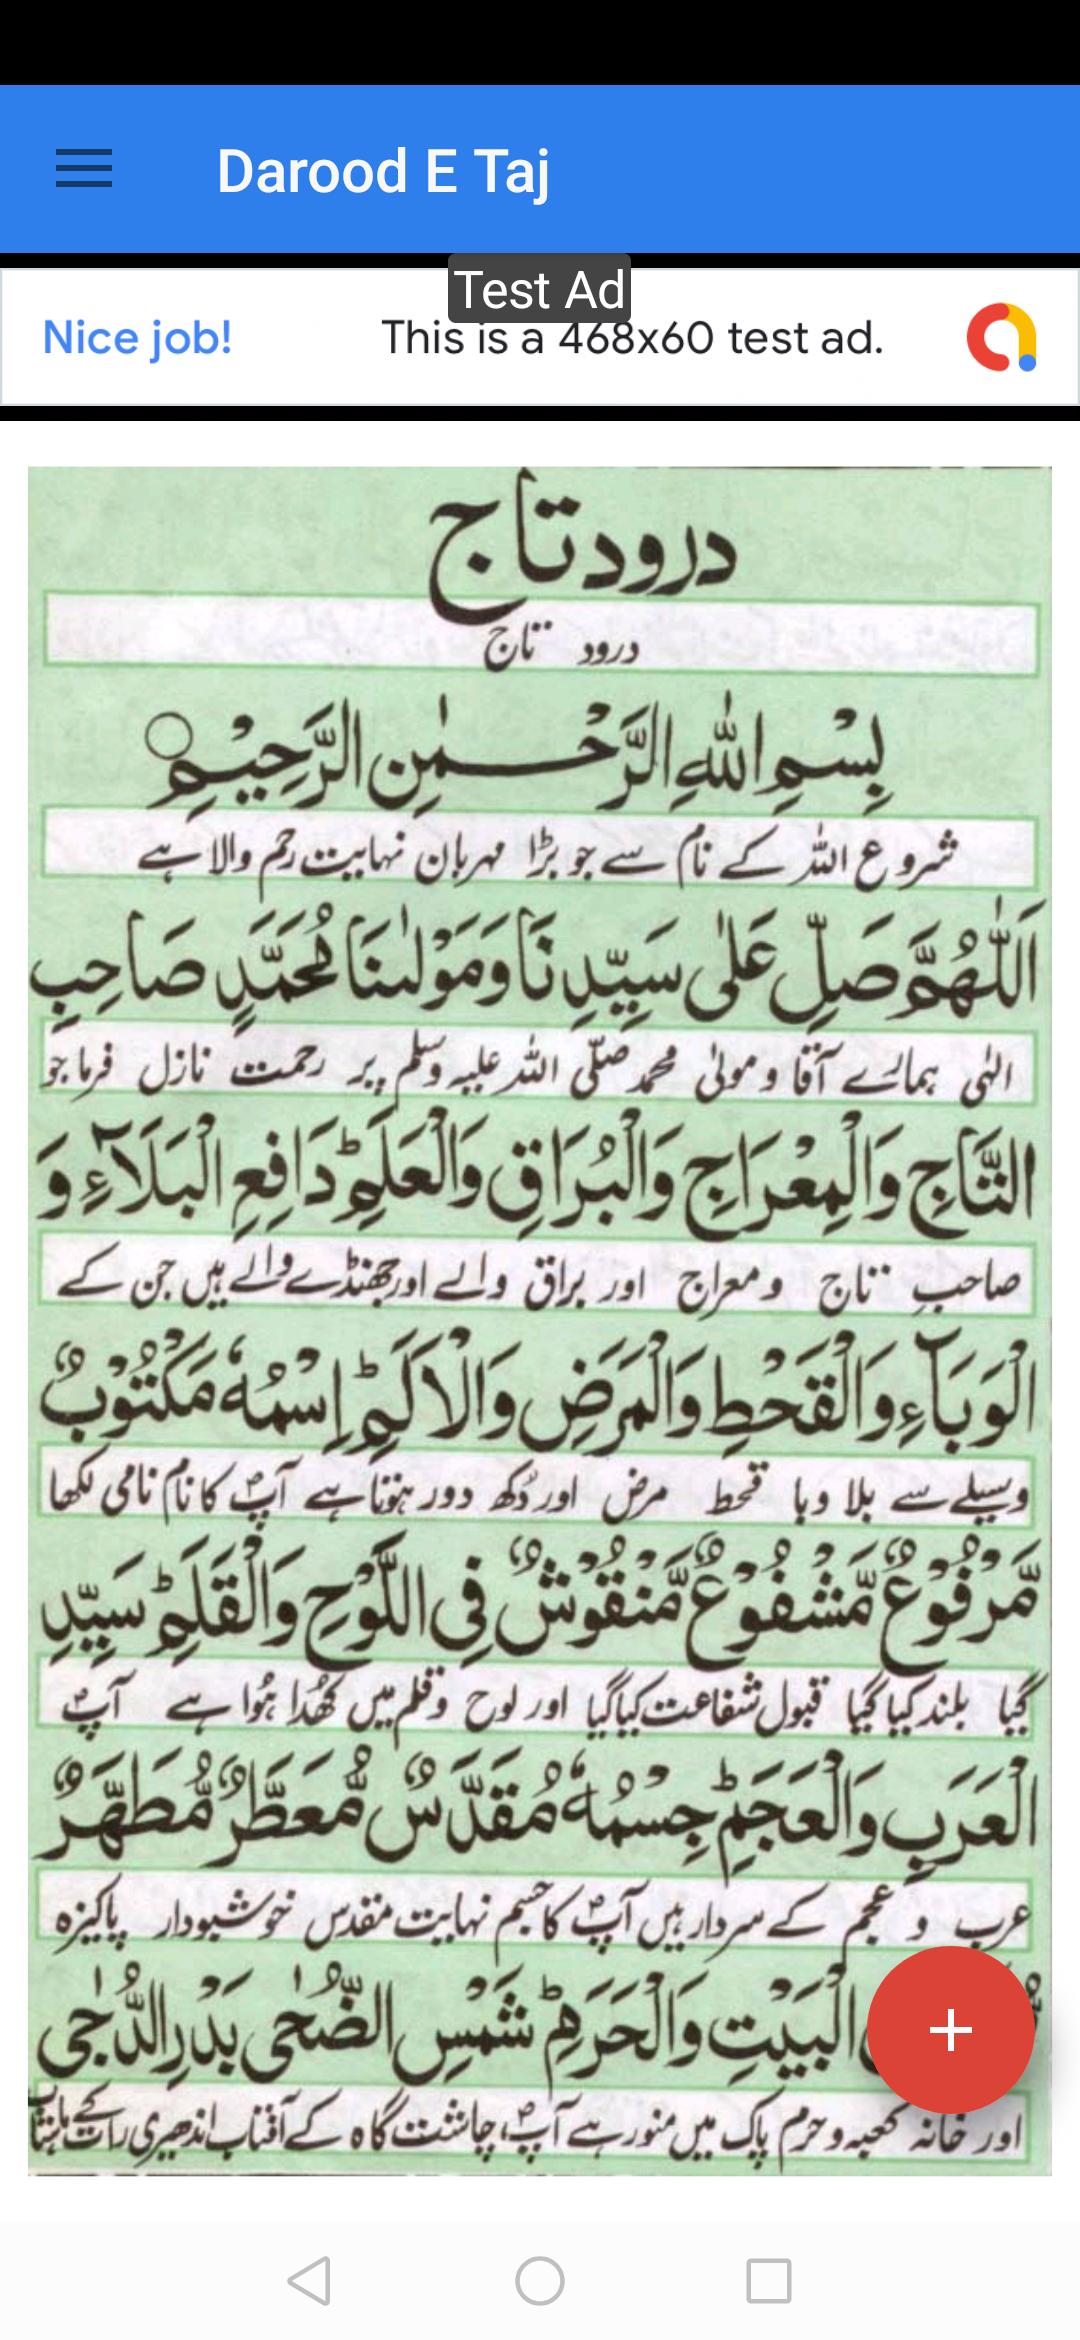 Darood E Taj
Test Ad
Nice job!
This is a 468x60 test ad.
درود تاج
درود تاج
بِسْمِ اللّٰهِ الرَّحْمٰنِ الرَّحِيْمِ
شروع اللہ کے نام سے جو بڑا مہربان نہایت رحم والا ہے
اَللّٰهُمَّ صَلِّ عَلٰى سَيِّدِنَا وَمَوْلٰىنَا مُحَمَّدٍ صَاحِبِ
الٰہی ہمارے آقا و مولیٰ محمد صلّی اللہ علیہ وسلم پر رحمت نازل فرما جو
التَّاجِ وَالْمِعْرَاجِ وَالْبُرَاقِ وَالْعَلَمِ ؕ دَافِعِ الْبَلَآءِ وَ
صاحبِ تاج و معراج اور براق والے اور جھنڈے والے ہیں جن کے
الْوَبَآءِ وَالْقَحْطِ وَالْمَرَضِ وَالْاَلَمِ ؕ اِسْمُهٗ مَكْتُوْبٌ
وسیلے سے بلا وبا قحط مرض اور دُکھ دور ہوتا ہے آپؐ کا نام نامی لکھا
مَّرْفُوْعٌ مَّشْفُوْعٌ مَّنْقُوْشٌ فِى اللَّوْحِ وَالْقَلَمِ ؕ سَيِّدِ
گیا بلند کیا گیا قبول شفاعت کیا گیا اور لوح و قلم میں کھُدا ہُوا ہے آپؐ
الْعَرَبِ وَالْعَجَمِ ؕ جِسْمُهٗ مُقَدَّسٌ مُّعَطَّرٌ مُّطَهَّرٌ
عرب و عجم کے سردار ہیں آپؐ کا جسم نہایت مقدس خوشبودار پاکیزہ
الْبَيْتِ وَالْحَرَمِ ؕ شَمْسِ الضُّحٰى بَدْرِ الدُّجٰى
اور خانہ کعبہ و حرم پاک میں منور ہے آپؐ چاشت گاہ کے آفتاب اندھیری رات کے